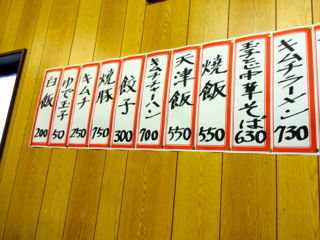 キムチラーメン 730
玉子とじ中華そば 630
焼飯 550
天津飯 550
キムチチャーハン 700
餃子 300
焼豚 750
キムチ 250
ゆで玉子 50
白飯 200